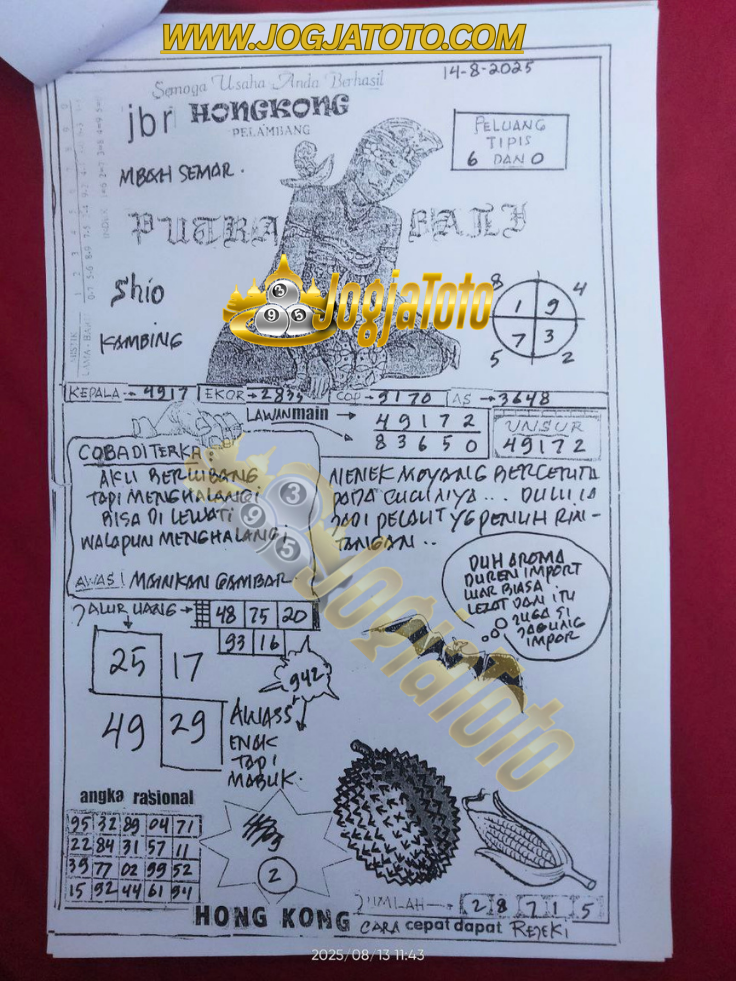 WWW.JOGJATOTO.COM
14-8-2025
Semoga Usaha Anda Berhasil
jbr HONGKONG
PELAMBANG
PELUANG
TIPIS
6 DAN 0
MBAH SEMAR.
PUTRA BALI
Shio
KAMBING
JogjaToto
8 4
1 9
7 3
5 2
KEPALA → 4917 EKOR → 2835 COP → 9170 AS → 3648
LAWAN main → 49172
83650
UNSUR
49172
COBA DITERKA:
AKU BERLUBANG
TAPI MENGHALANGI
BISA DI LEWATI
WALAPUN MENGHALANGI
AWAS! MAINKAN GAMBAR
NENEK MOYANG BERCERITA
PADA CUCUNYA... DULU IA
JADI PELAUT YG PENUH RIN-
TANGAN..
DUH AROMA
DUREN IMPORT
LUAR BIASA
LEZAT DAN ITU
JUGA SI
JAGUNG
IMPOR
JALUR UANG → 48 75 20
93 16
25 17
49 29
942
AWASS
ENAK
TAPI
MABUK.
JogjaToto
angka rasional
95 32 89 04 71
22 84 31 57 11
39 77 02 99 52
15 92 44 61 94
2
JUMLAH → 2 8 7 1 5
HONG KONG CARA cepat dapat REJEKI
2025/08/13 11:43